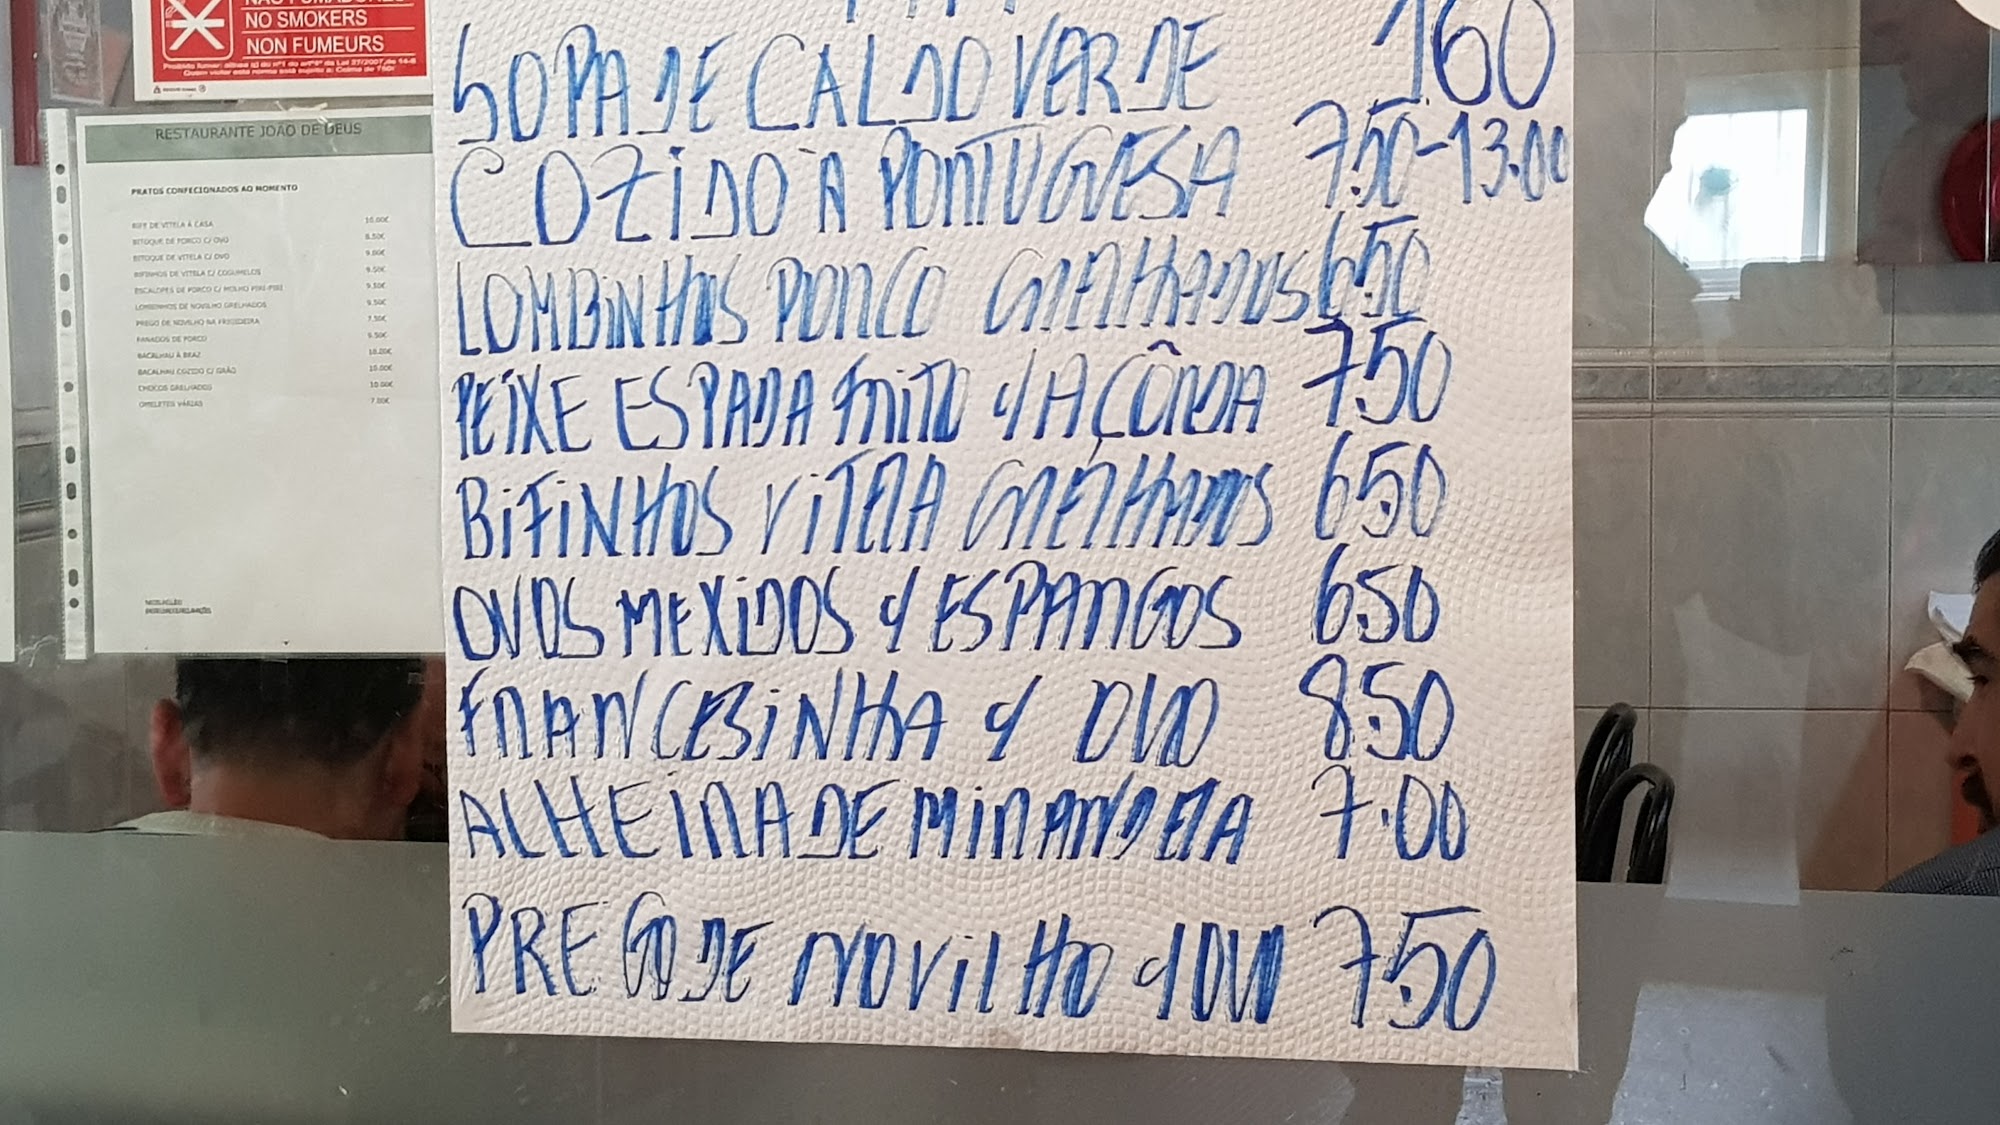 NO SMOKERS
NON FUMEURS
RESTAURANTE JOÃO DE DEUS
PRATOS CONFECIONADOS AO MOMENTO
BIFE DE VITELA À CASA 10.00€
BITOQUE DE PORCO C/ OVO 8.50€
BITOQUE DE VITELA C/ OVO 9.00€
BIFINHOS DE VITELA C/ COGUMELOS
ESCALOPES DE PORCO C/ MOLHO PIRI-PIRI 9.50€
LOMBINHOS DE NOVILHO GRELHADOS 9.50€
PREGO DE NOVILHO NA FRIGIDEIRA 7.50€
PANADOS DE PORCO 9.50€
BACALHAU À BRAZ 10.00€
BACALHAU COZIDO C/ GRÃO 10.00€
CHOCOS GRELHADOS 10.00€
OMELETES VÁRIAS 7.00€
SOPA DE CALDO VERDE 160
COZIDO À PORTUGUESA 7.50-13.00
LOMBINHOS PORCO GRELHADOS 6.50
PEIXE ESPADA FRITO C/ AÇÔRDA 7.50
BIFINHOS VITELA GRELHADOS 6.50
OVOS MEXIDOS C/ ESPARGOS 6.50
FRANCESINHA C/ OVO 8.50
ALHEIRA DE MIRANDELA 7.00
PREGO DE NOVILHO C/ OVO 7.50